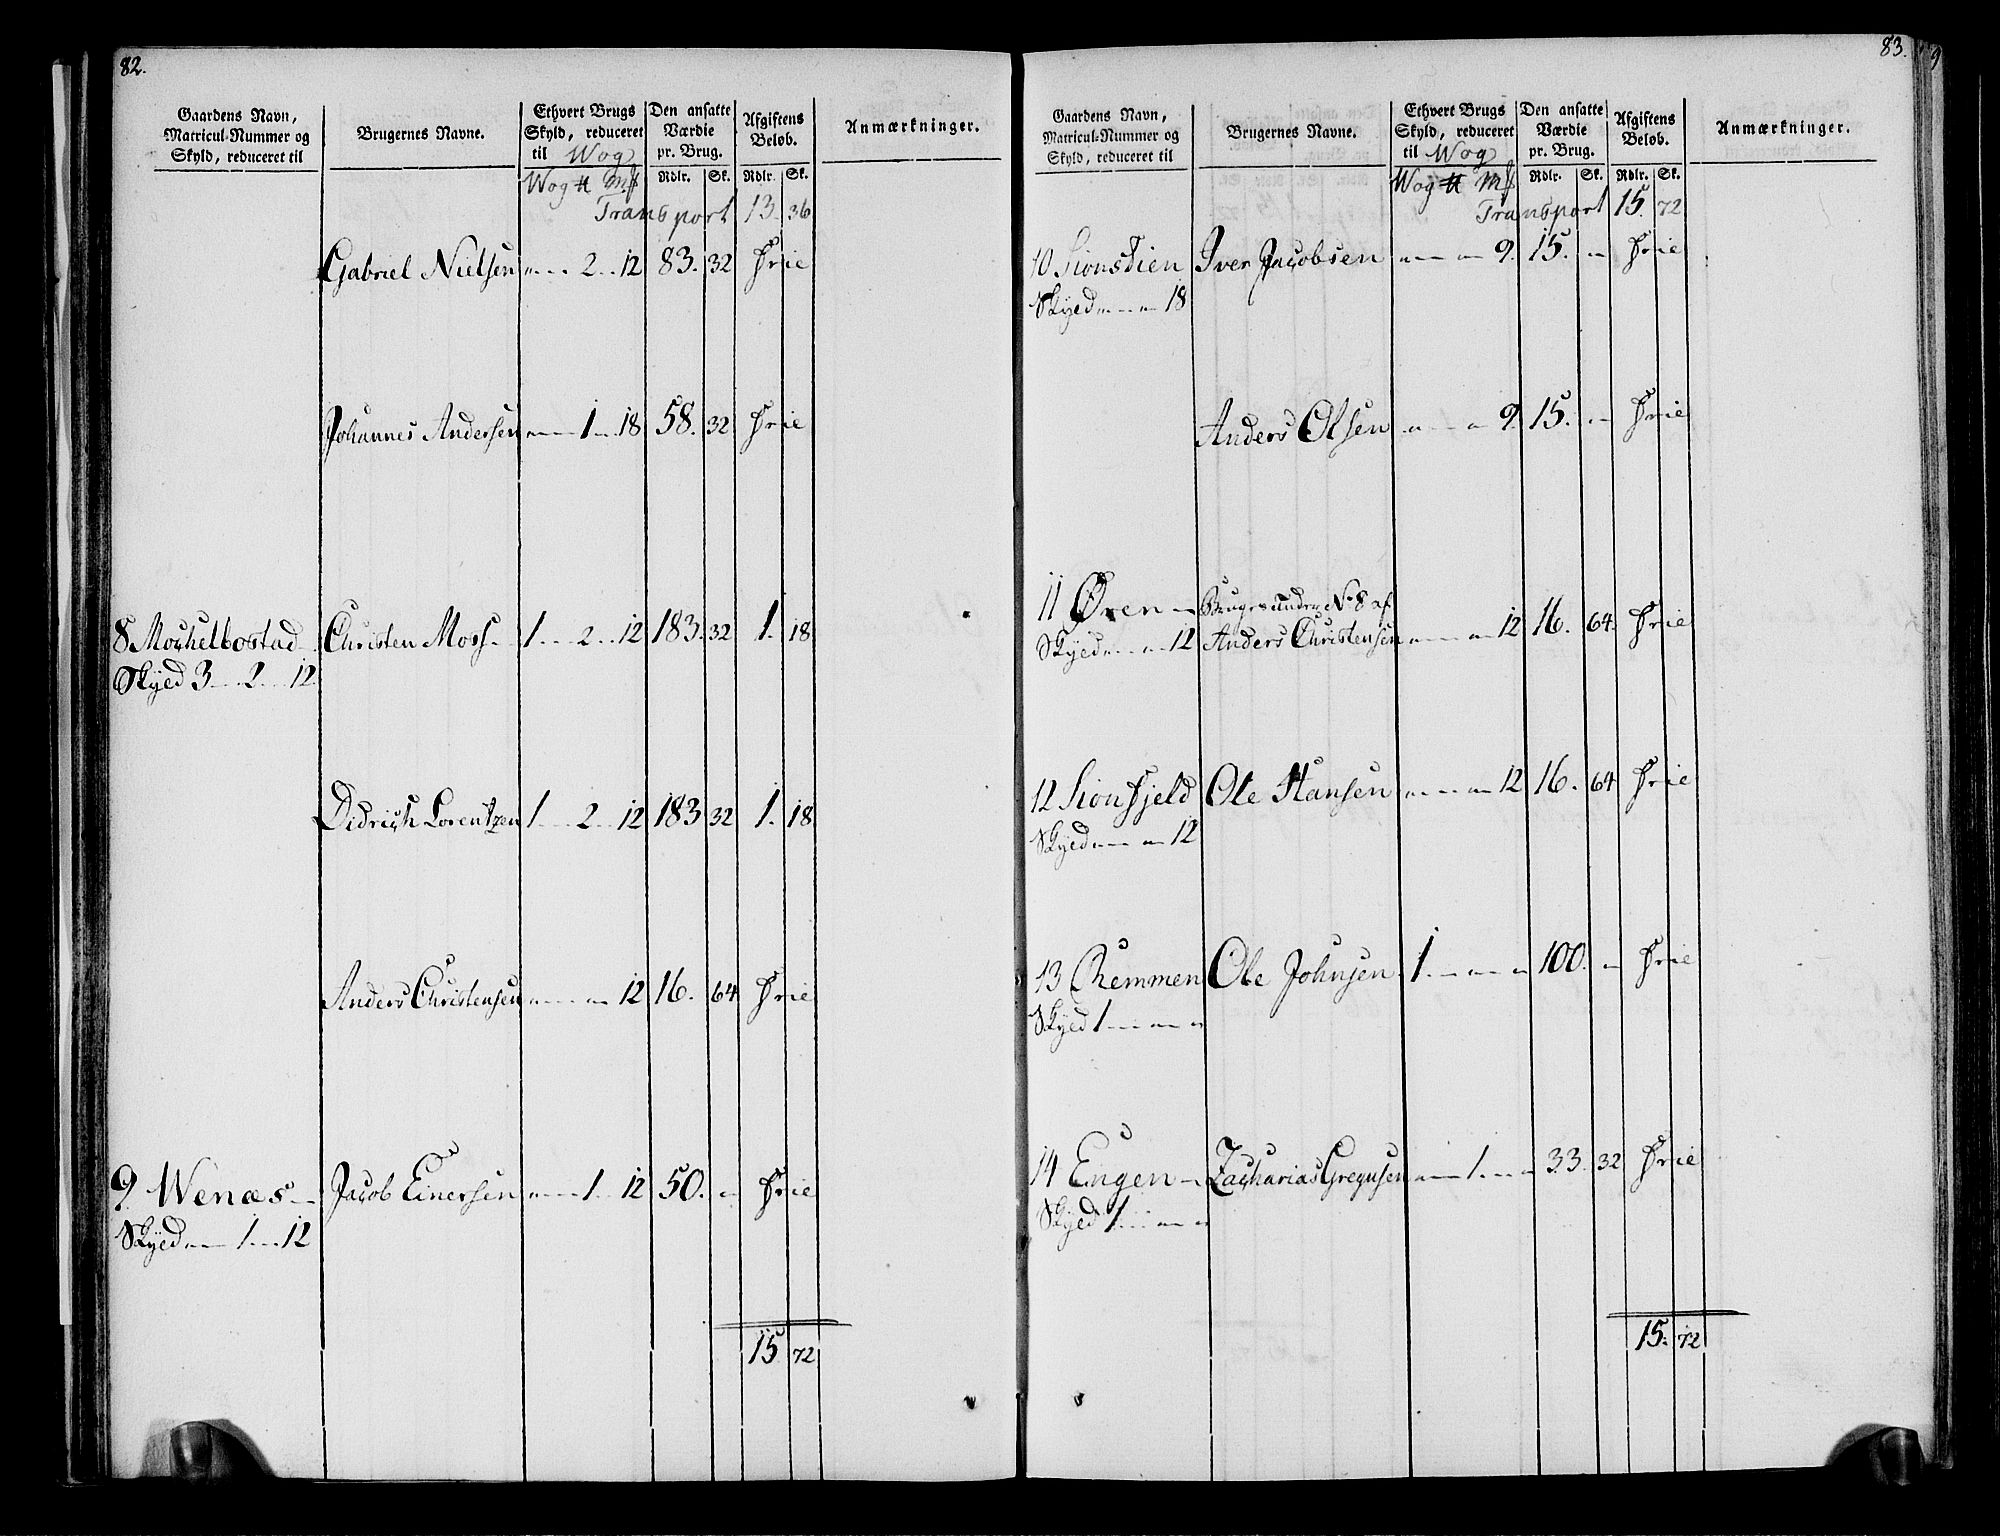 82.
Gaardens Navn,
Matricul-Nummer og
Skyld, reduceret til
Brugernes Navne.
Ethvert Brugs
Skyld, reduceret
til Wog
Den ansatte
Værdie
pr. Brug.
Afgiftens
Beløb.
Anmærkninger.
Wog ℔ Mk Rdlr. Sk. Rdlr. Sk.
Transport 13. 36
Gabriel Nielsen „ 2 „ 12 83. 32 Frie
Johannes Andersen „ 1 „ 18 58. 32 Frie
8 Mochelbostad Christen Moss 1 „ 2 „ 12 183. 32 1. 18
Skyed 3 „ 2 „ 12
Didrich Lorentzen 1 „ 2 „ 12 183 32 1. 18
Anders Christensen „ „ 12 16. 64 Frie
9. Wenæs Jacob Einersen „ 1 „ 12 50. „ Frie
Skyed „ 1 „ 12
15 72
83.
Gaardens Navn,
Matricul-Nummer og
Skyld, reduceret til
Brugernes Navne.
Ethvert Brugs
Skyld, reduceret
til Wog
Den ansatte
Værdie
pr. Brug.
Afgiftens
Beløb.
Anmærkninger.
Wog ℔ Mk Rdlr. Sk. Rdlr. Sk.
Transport 15. 72
10 Sionstien Iver Jacobsen „ „ 9. 15. „ Frie
Skyed „ „ 18
Anders Olsen „ „ 9. 15. „ Frie
11 Øren Bruges under No 8 af
Skyed „ „ 12 Anders Christensen „ „ 12 16. 64. Frie
12 Sionsfjeld Ole Hansen „ „ 12 16. 64 Frie
Skyed „ „ 12
13 Remmen Ole Johnsen 1. „ „ 100. „ Frie
Skyed 1 „ „
14 Engen Zacharias Gregusen „ 1. „ 33. 32 Frie
Skyed 1 „ „
15. 72